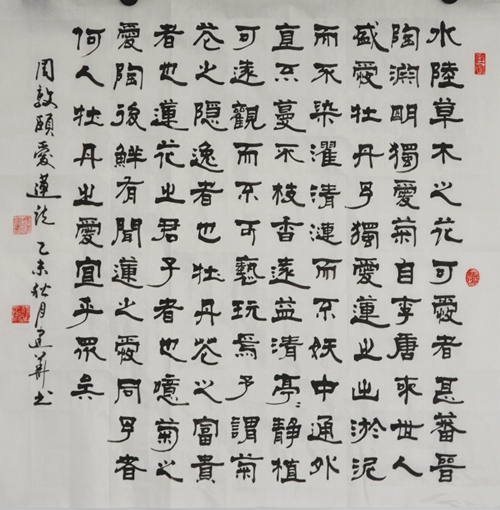 水陸草木之花可愛者甚蕃晉
陶淵明獨愛菊自李唐來世人
盛愛牡丹予獨愛蓮之出淤泥
而不染濯清漣而不妖中通外
直不蔓不枝香遠益清亭〻静植
可遠觀而不可褻玩焉予謂菊
花之隱逸者也牡丹花之富貴
者也蓮花之君子者也噫菊之
愛陶後鮮有聞蓮之愛同予者
何人牡丹之愛宜乎眾矣
周敦頤愛蓮説 乙未秋月 书